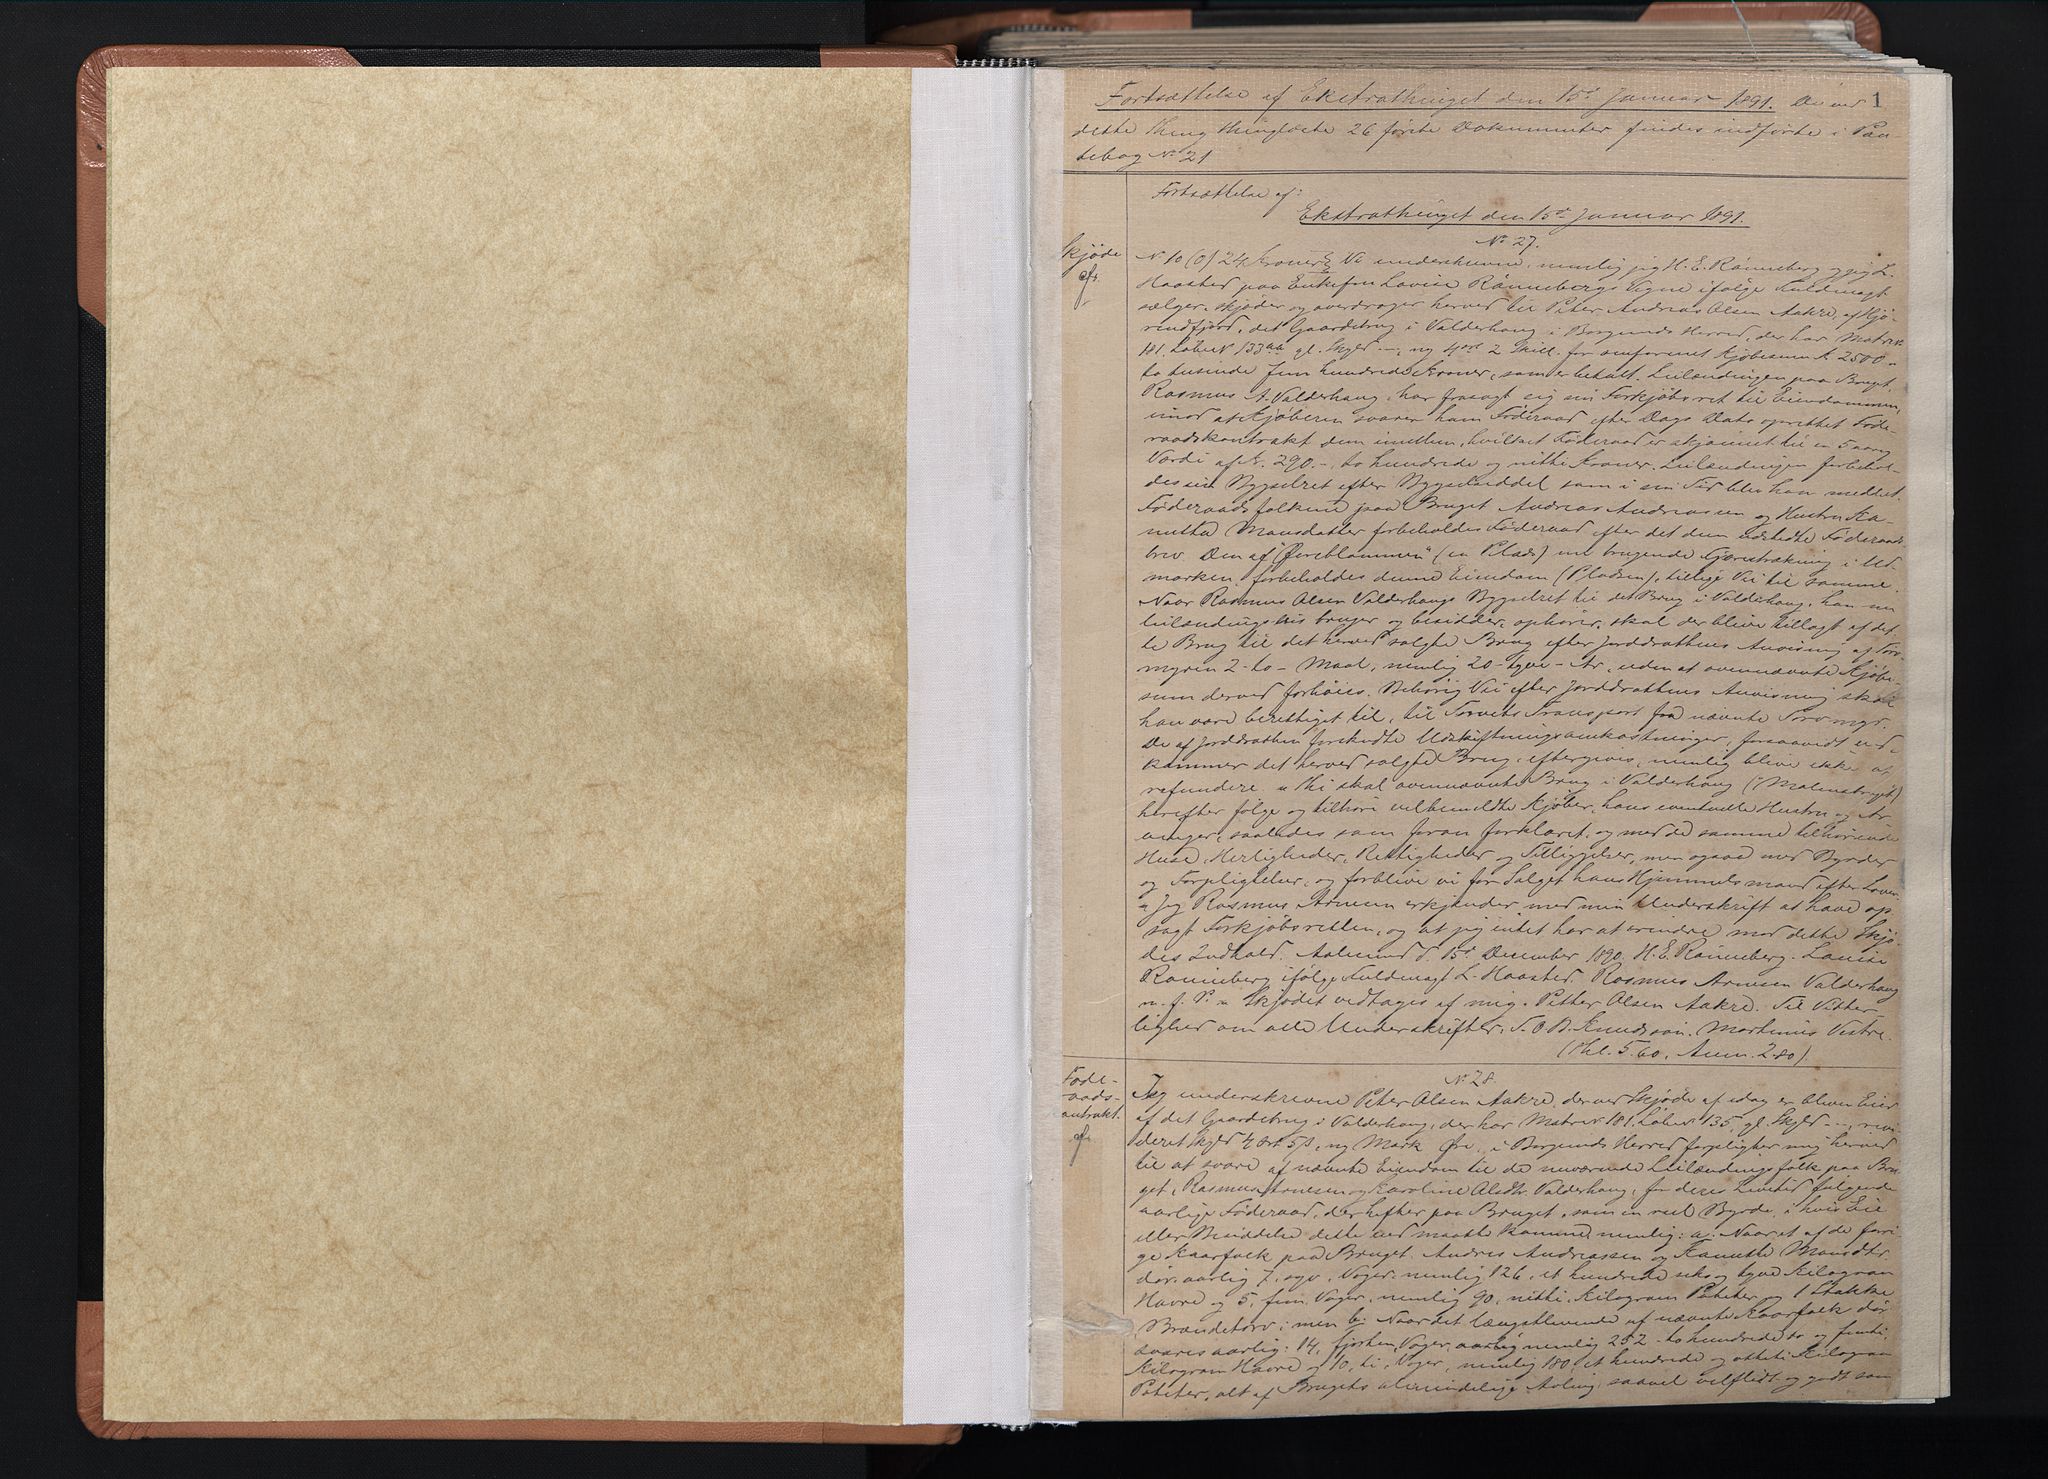 1
Fortsættelse af Ekstrathinget den 15de Januar 1891. De ved
dette Thing thinglæste 26 første Dokumenter findes indførte i Pan-
tebog No 21
Fortsættelse af:
Ekstrathinget den 15de Januar 1891.
No 27.
Skjøde
N. 10 (0) 24 Kroner. Vi underskrevne, nemlig jeg H. E. Rønneberg og jeg L.
Haasted paa Enkefru Lovise Rønnebergs Vegne ifølge Fuldmagt
sælger, skjøder og overdrager herved til Peter Andreas Olsen Aakre, af Hjø-
rindfjord, det Gaardsbrug i Valderhaug i Borgunds Herred, der har Matr.No
181. Løbe No 133aa gl. Skyld —, ny 4 ort 2 Skill. for omforenet Kjøbesum K. 2500 –
to tusinde fem hundrede Kroner, som er betalt. Leilændingen paa Bruget,
Rasmus A. Valderhaug, har frasagt sig sin Forkjøbsret til Eiendommen,
imod at Kjøberen svarer ham Føderaad efter Dags Dato oprettet Føde-
raadskontrakt dem imellem, hvilket Føderaad er skjønnet til en 5aarig
Værdi af K. 290.–, to hundrede og nitti Kroner. Leilændingen forbehol-
des sin Bygselret efter Bygselseddel som i sin Tid blev ham meddelt.
Føderaadsfolkene paa Bruget Andreas Andreassen og Hustru Ka-
nutta Monsdatter forbeholdes Føderaad efter det dem udstedte Føderaads-
brev. Den af "Øreblommen" (en Plads) nu brugende Gjærestrækning i Ud-
marken, forbeholdes denne Eiendom (Pladsen), tillige Vei til samme.
Naar Rasmus Olsen Valderhaugs Bygselret til det Brug i Valderhaug, han nu
leilændingsvis bruger og besidder, ophører, skal der blive tillagt af det-
te Brug til det herved solgte Brug efter Jorddrottens Anvisning af Torv-
myren 2–to– Maal, nemlig 20–tyve– Ar, uden at ovennævnte Kjøbe-
sum derved forhøies. Behørig Vei efter Jorddrottens Anvisning skal
han være berettiget til, til Torvets Transport fra nævnte Torvmyr.
De af Jorddrotten forskudte Udskiftningsomkostninger, forsaavidt ved-
kommer det herved solgte Brug, eftergives, nemlig bliver ikke at
refundere. Thi skal ovennævnte Brug i Valderhaug (Malenesbruget)
herefter følge og tilhøre velbemeldte Kjøber, hans eventuelle Hustru og Ar-
vinger, saaledes som foran forklaret, og med de samme tilhørende
Huse, Herligheder, Rettigheder og Tilliggelser, men ogsaa med Byrder
og Forpligtelser, og forblive vi for Salget hans Hjemmelsmand efter Loven.
Jeg Rasmus Arnesen erkjender med min Underskrift at have op-
sagt Forkjøbsretten, og at jeg intet har at erindre mod dette Skjø-
des Indhold. Aalesund d. 15de December 1890. H. E. Rønneberg. Lovise
Rønneberg ifølge Fuldmagt L. Haasted. Rasmus Arnesen Valderhaug
m. f. P. Skjødet vedtages af mig. Petter Olsen Aakre. Til Vitter-
lighed om alle Underskrifter: T. O. B. Knudsson. Marthinus Vestre.
(Thl. 5.60, Anm. 2.80).
No 28.
Føde-
raads-
kontrakt.
Jeg underskrevne Peter Olsen Aakre, der ved Skjøde af idag er bleven Eier
af det Gaardsbrug i Valderhaug, der har Matr.No 181, Løbe No 135, gl. Skyld —, revi-
deret Skyld 4 Ort 5 ß, ny Mark Øre, i Borgunds Herred forpligter mig herved
til at svare af nævnte Eiendom til de nuværende Leilændingsfolk paa Bru-
get, Rasmus Arnesen og Karoline Olsdtr. Valderhaug, for deres Levetid følgende
aarlige Føderaad, der hefter paa Bruget, som en reel Byrde, i hvis Eie
eller Besiddelse dette end maatte komme, nemlig: a. Naar et af de forri-
ge Kaarfolk paa Bruget, Andres Andreassen og Kanutte Monsdtr.
dør, aarlig 7, syv, Voger, nemlig 126, et hundrede seks og tyve Kilogram
Havre og 5, fem, Voger, nemlig 90, nitti, Kilogram Poteter og 1 Stakke
Brændetorv; men b: Naar det længstlevende af nævnte Kaarfolk dør
svares aarlig: 14, fjorten, Voger, aarlig nemlig 252– to hundrede to og femti
Kilogram Havre og 10, ti, Voger, nemlig 180, et hundrede og otteti Kilogram
Poteter, alt af Brugets almindelige Avling, saavel velflidt og godt som